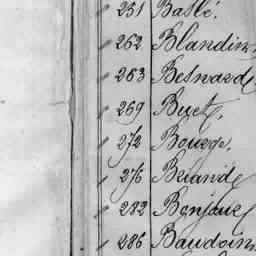 251 Baslé.
262 Blandin,
263 Besnard
269 Buet,
272 Bourge,
276 Briand
282 Bonjour
286 Baudoin